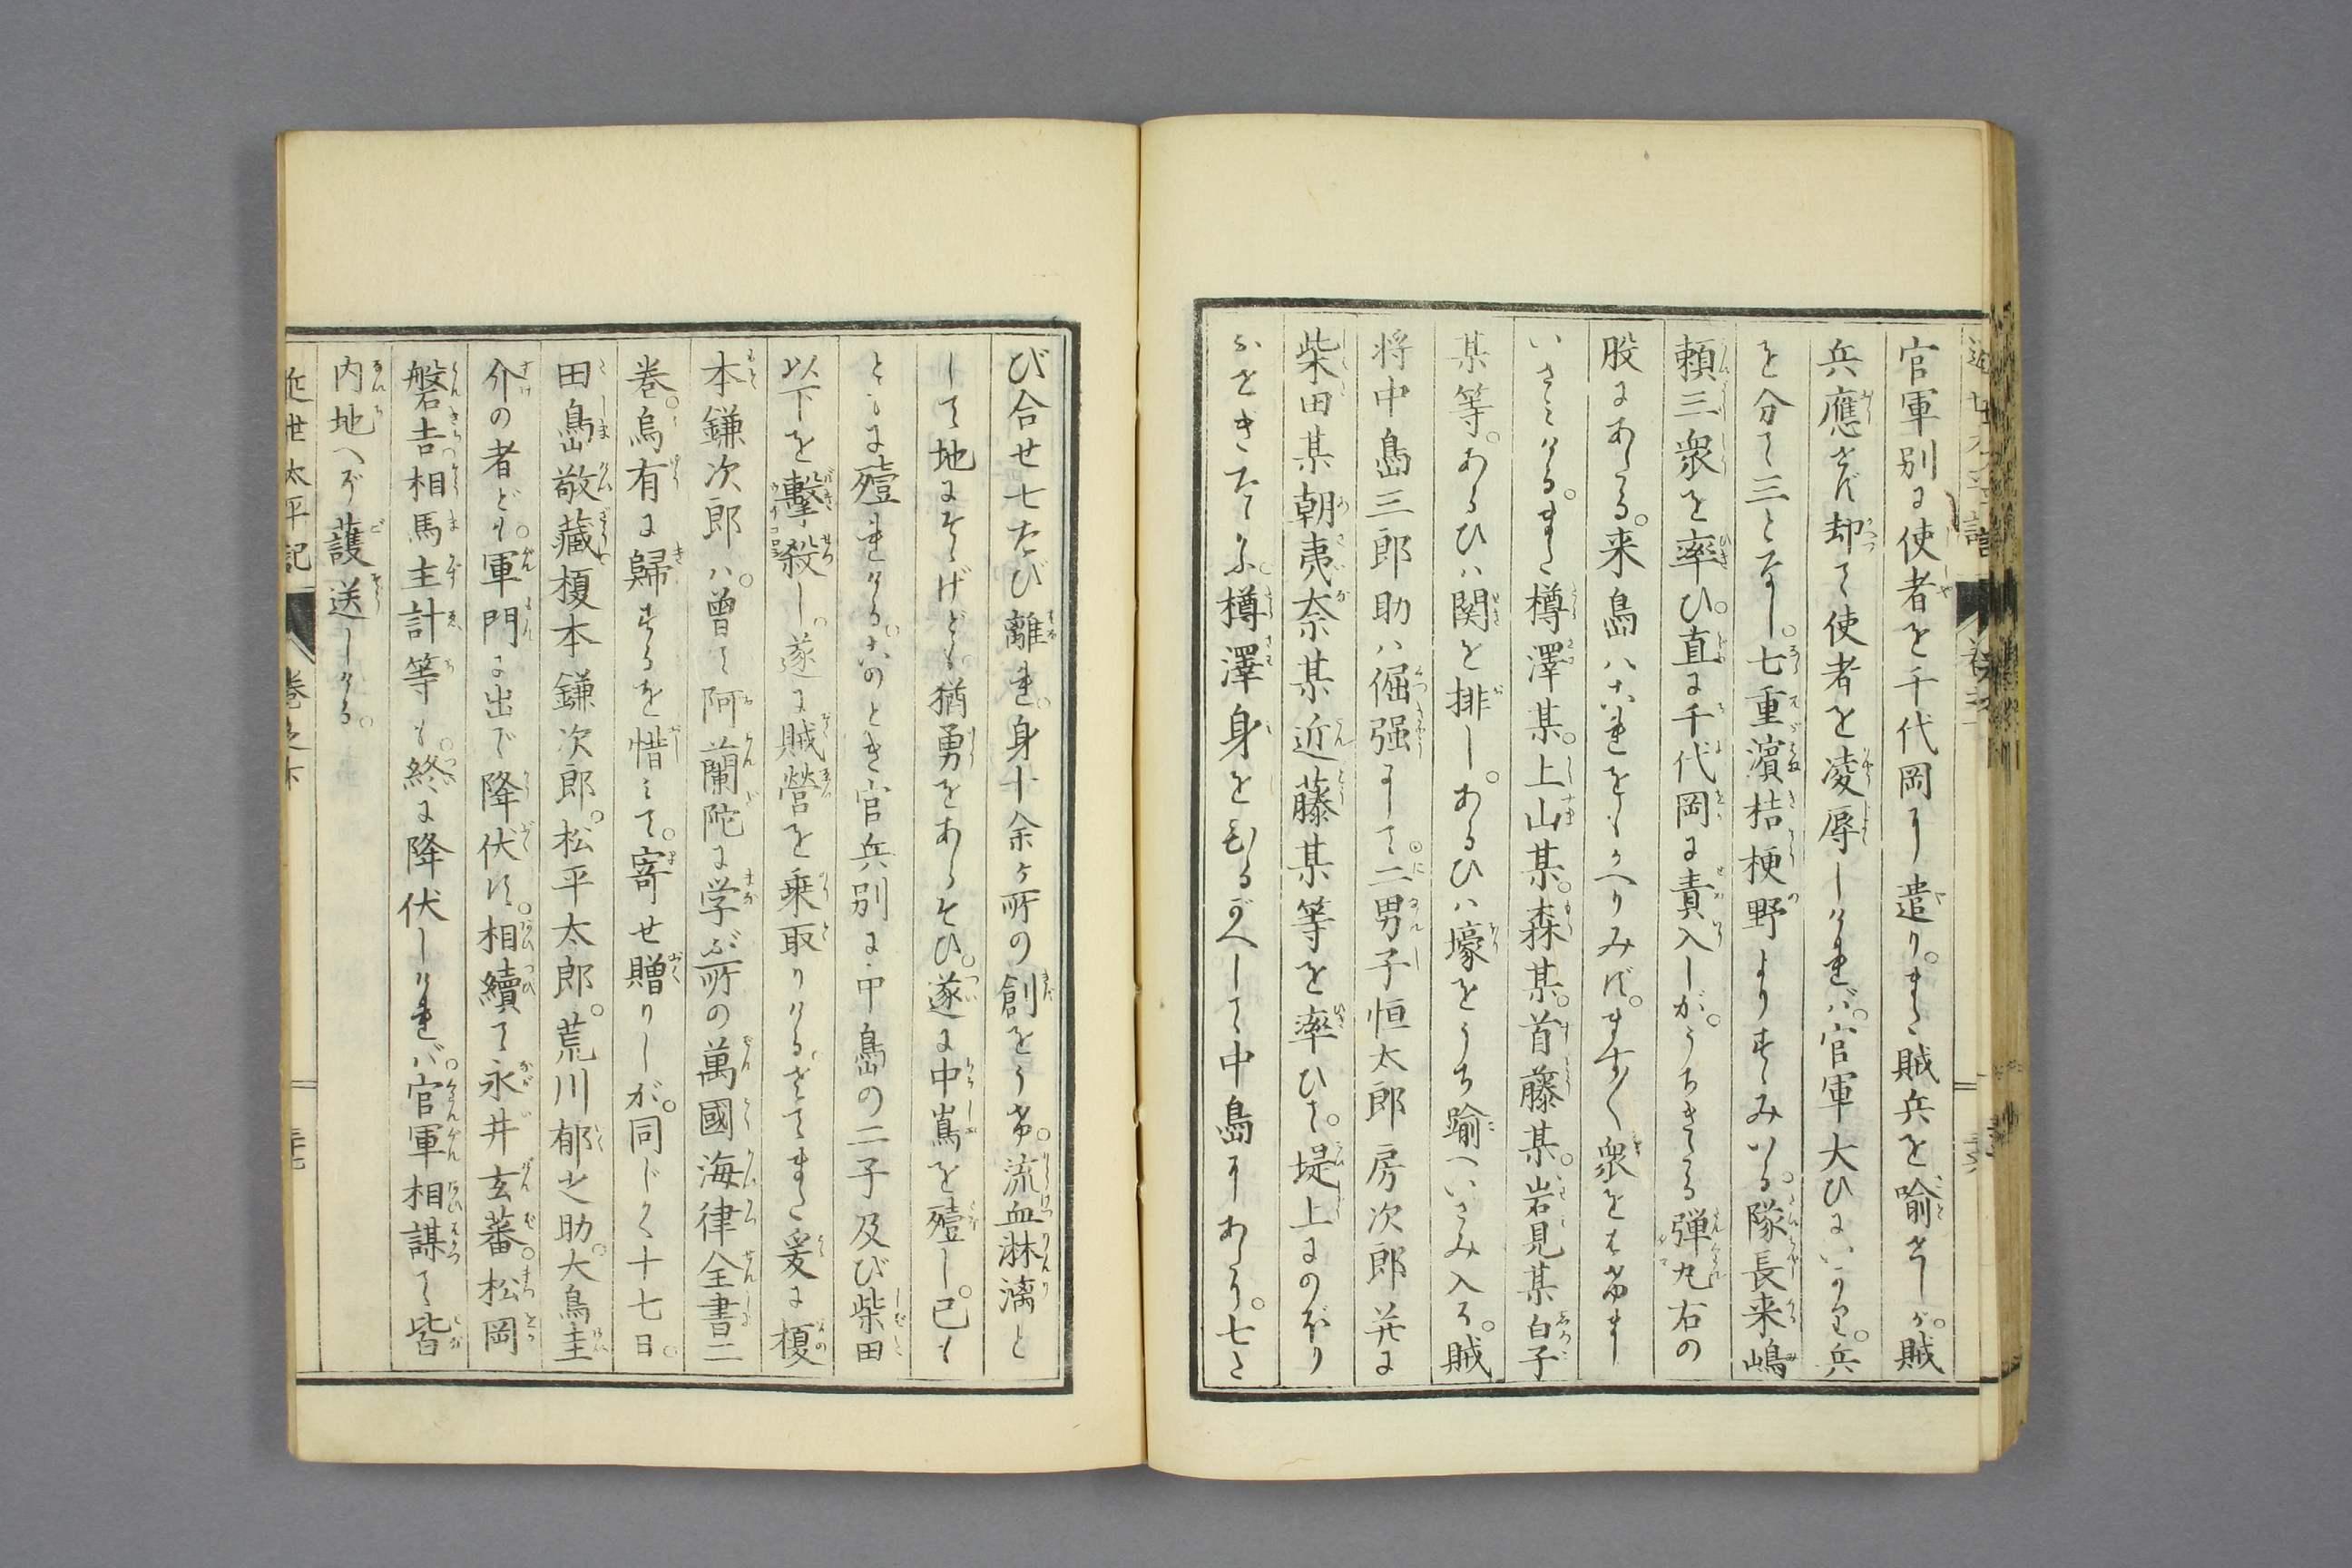 官軍別に使者を千代岡に遣り。また賊兵を喩せしが。賊
兵應ぜず却て使者を凌辱しければ。官軍大ひにいかり。兵
を分て三となし。七重濱桔梗野よりすゝみいる。隊長来嶋
頼三衆を率ひ。直に千代岡に責入しが。うちきたる弾丸右の
股にあたる。来島ハこれをもかへりみず。ますます衆をはげまし
いさみける。また樽澤某。上山某。森某。首藤某。岩見某白子
某等。あるひハ関を排し。あるひハ壕をうち踰へいさみ入る。賊
将中島三郎助ハ倔强にして。二男子恒太郎房次郎并に
柴田某朝夷奈某近藤某等を率ひて。堤上にのぼり
樽澤身をひるがへして中島にあたり。七さ
び合せ七たび離れ。身十余ヶ所の創をうけ。流血淋漓と
して地にそゝげども。猶勇をあらそひ。遂に中嶌を殪し。己も
ともに殪れける。このとき官兵別に中島の二子及び柴田
以下を擊殺し。遂に賊營を乗取りける。さてまた爰に榎
本鎌次郎ハ。曽て阿蘭陀に学ぶ所の萬國海律全書二
巻。烏有に歸するを惜みて。寄せ贈りしが。同じく十七日。
田島敬藏榎本鎌次郎。松平太郎。荒川郁之助。大鳥圭
介の者ども。軍門に出で降伏す。相續て永井玄蕃。松岡
磐吉。相馬主計等も。終に降伏しければ。官軍相謀て皆
内地へぞ護送しける。
近世太平記 巻之下